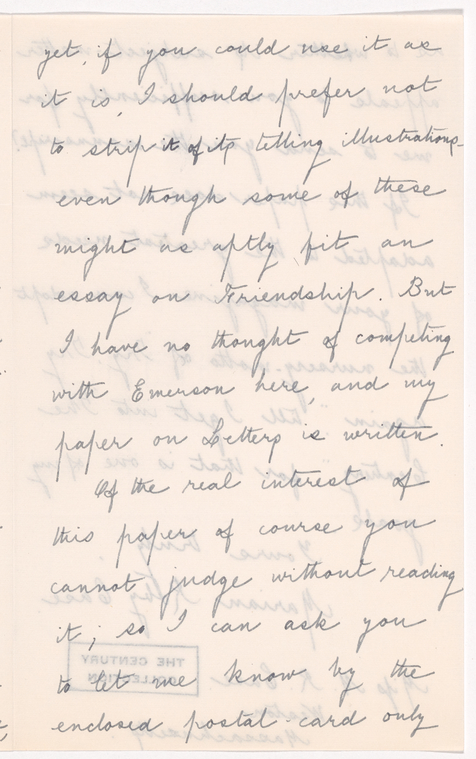 yet, if you could use it as
it is, I should prefer not
to strip it of its telling illustrations -
even though some of these
might as aptly fit an
essay on Friendship. But
I have no thought of competing
with Emerson here, and my
paper on Letters is written.
Of the real interest of
this paper of course you
cannot judge without reading
it; so I can ask you
to let me know by the
enclosed postal-card only
THE CENTURY
COLLECTION